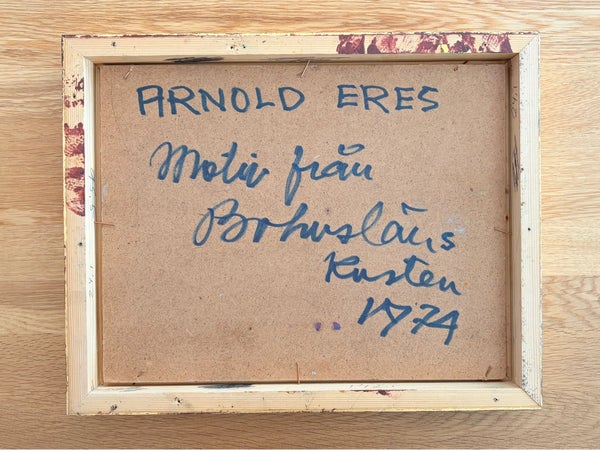 ARNOLD ERES
Motiv från
Bohusläns
Kusten
1974